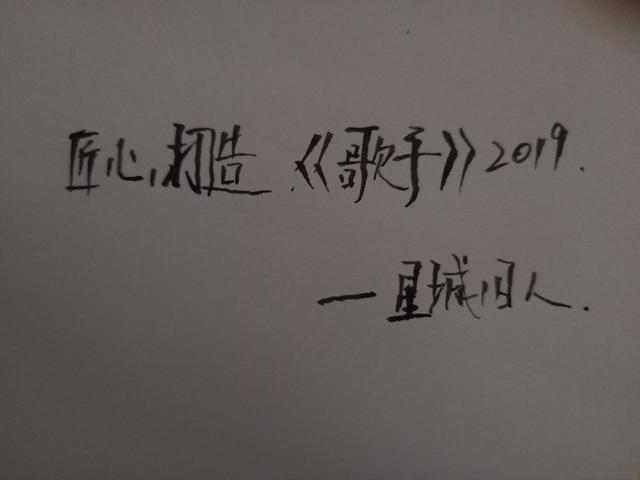 匠心打造《歌手》2019.
一星城旧人.